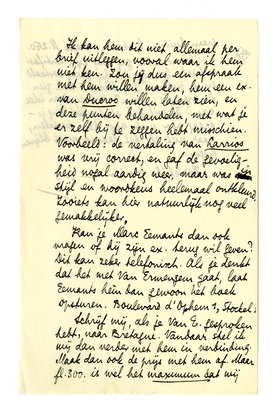 Ik kan hem dit niet allemaal per
brief uitleggen, vooral waar ik hem
niet ken. Zou jij dus een afspraak
met hem willen maken, hem een ex.
van Ducroo willen laten zien, en
deze punten behandelen, met wat je
er zelf bij te zeggen hebt misschien.
Voorbeeld: de vertaling van Larrios
was vrij correct, en gaf de gevoelig-
heid nogal aardig weer, maar was in
stijl en woordkeus heelemaal
Zooiets kan hier natuurlijk nog veel
gemakkelijker.
Kan je Marc Eemants dan ook
vragen of hij zijn ex. terug wil geven?
Dit kan zeker telefonisch. Als je denkt
dat het met Van Ermengem gaat, laat
Eemants hem dan gewoon het boek
opsturen. Boulevard d'Ophem 1, Stockel.
Schrijf mij, als je Van E. gesproken
hebt, naar Bretagne. Vandaar stel ik
mij dan verder met hem in verbinding.
Maak dan ook de prijs met hem af. Maar
fl. 300. is wel het maximum dat wij